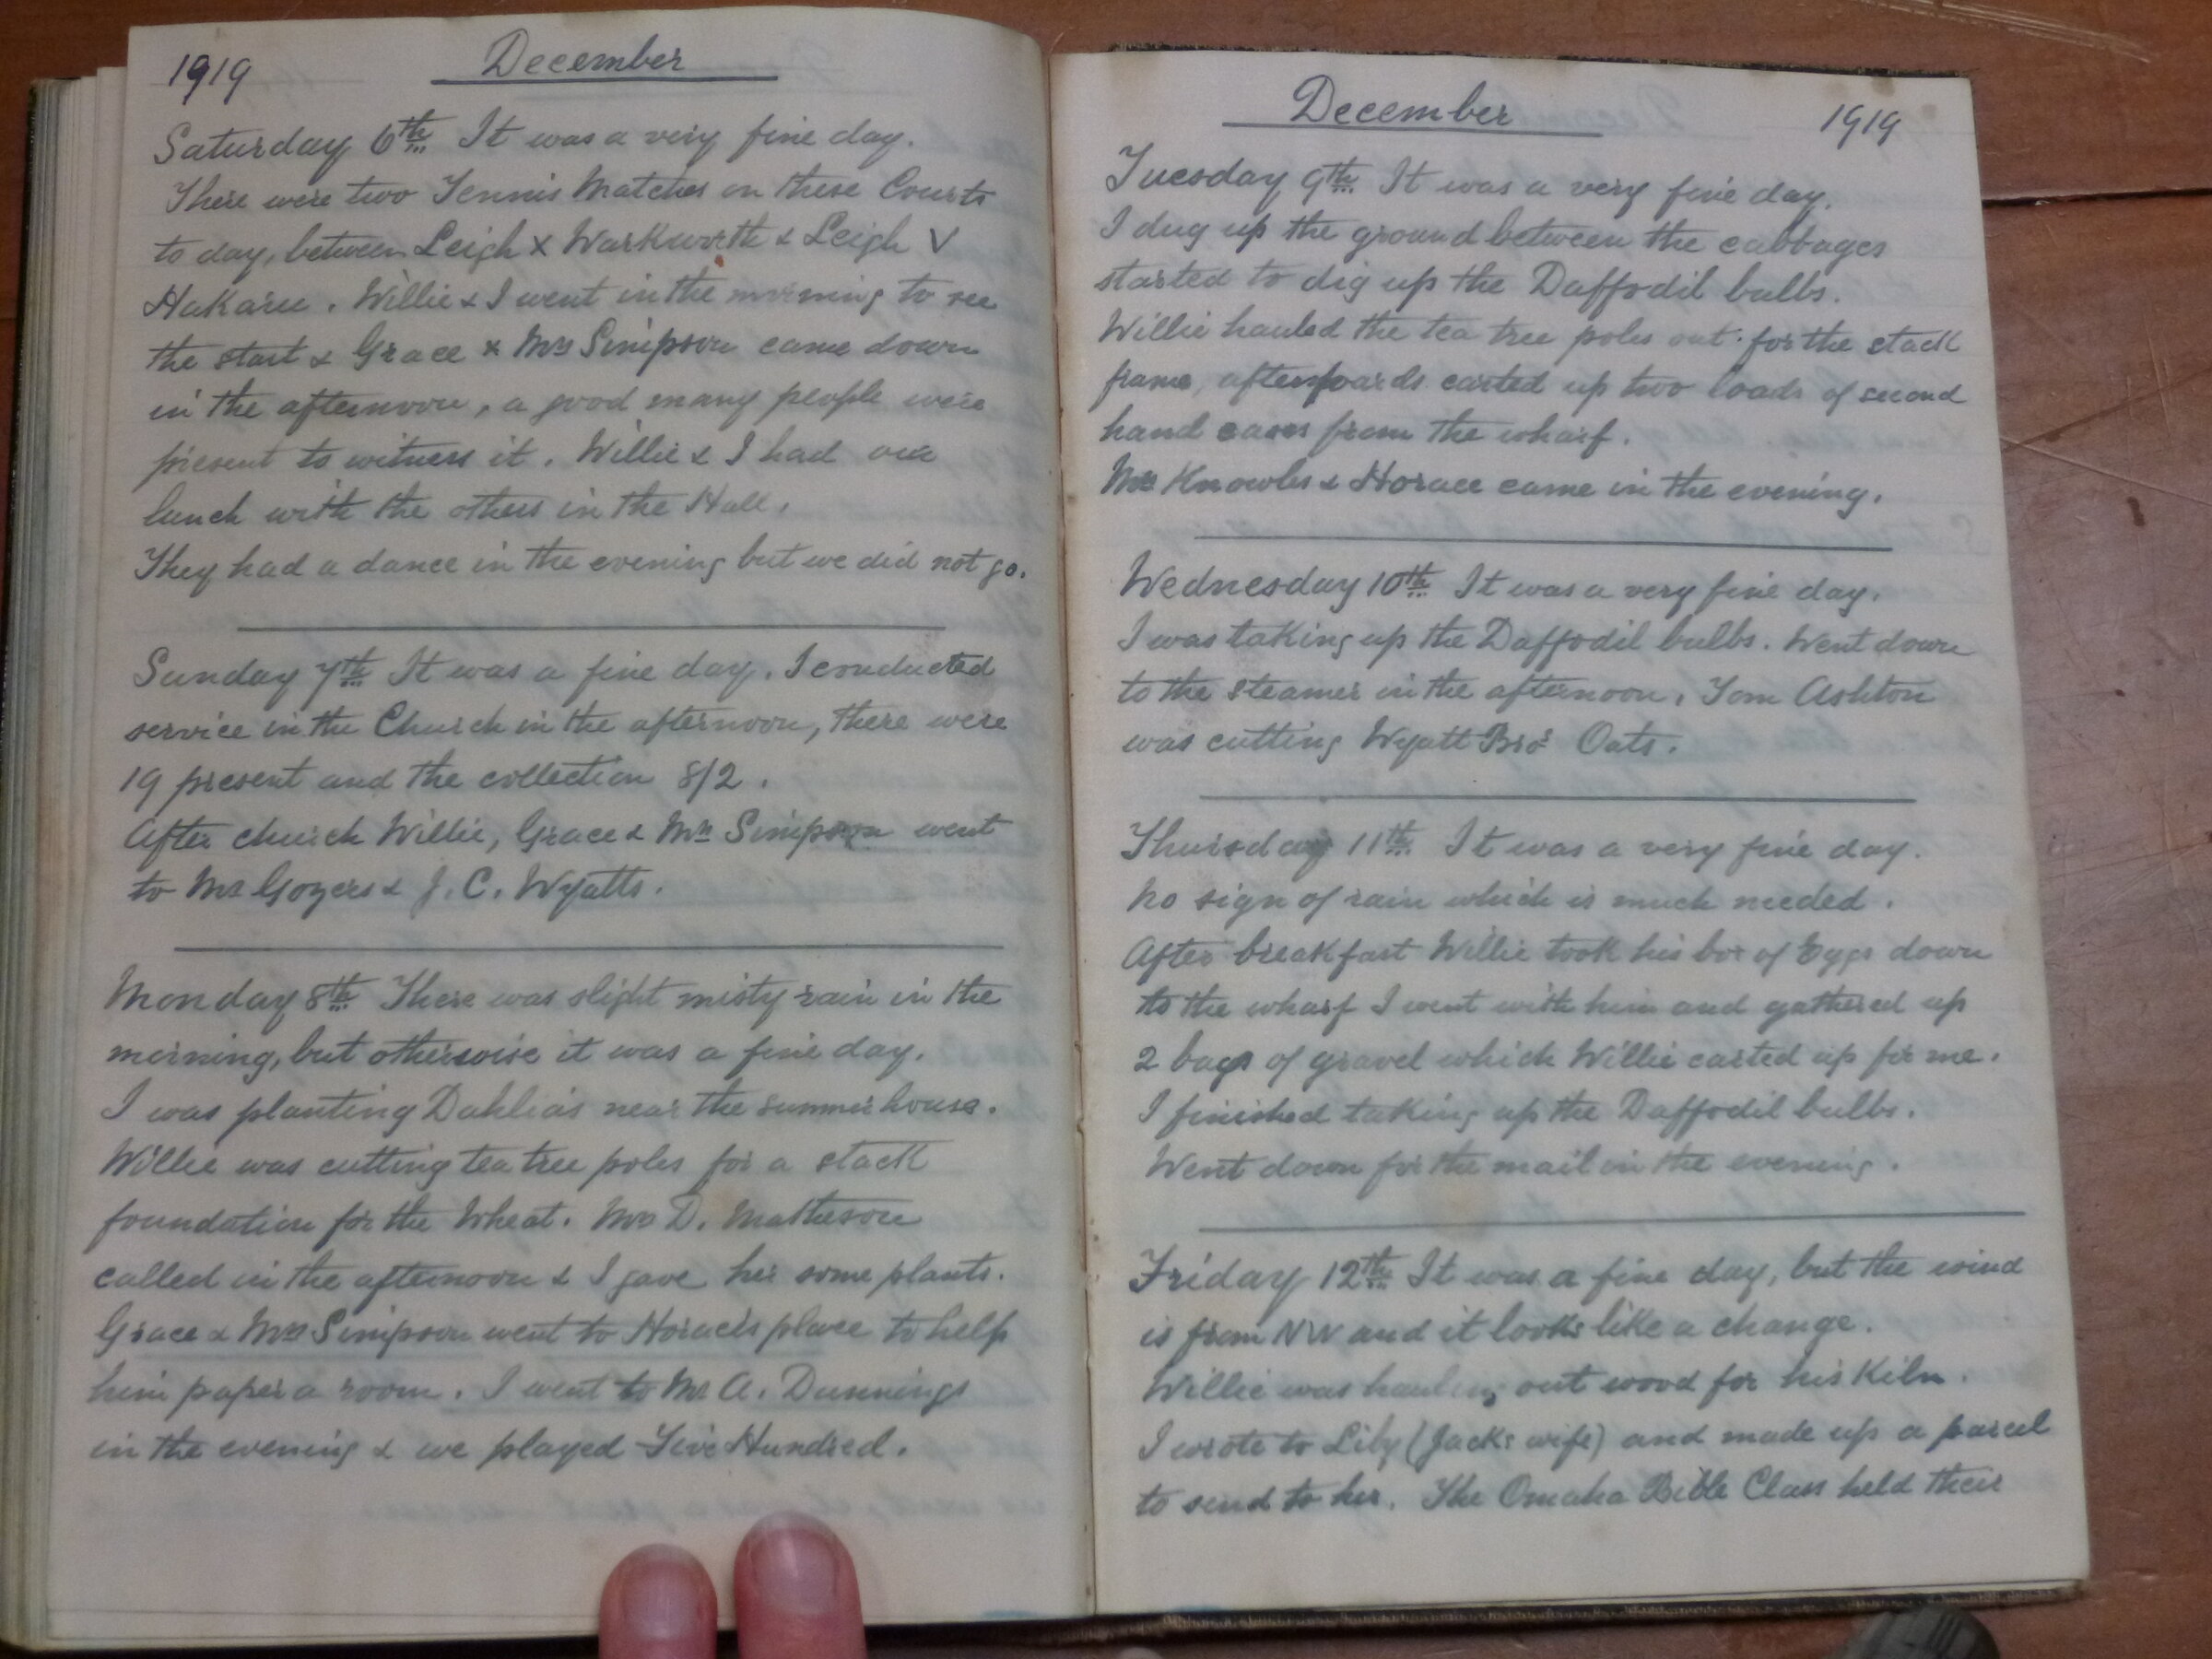 1919 December
Saturday 6th It was a very fine day.
There were two Tennis Matches on these Courts
to day, between Leigh x Warkworth & Leigh V
Hakaru. Willie & I went in the morning to see
the start & Grace & Mrs Simpson came down
in the afternoon, a good many people were
present to witness it. Willie & I had our
lunch with the others in the Hall.
They had a dance in the evening but we did not go.
Sunday 7th It was a fine day. I conducted
service in the Church in the afternoon, there were
19 present and the collection 8/2.
After church Willie, Grace & Mrs Simpson went
to Mr Gozers & J. C. Wyatts.
Monday 8th There was slight misty rain in the
morning, but otherwise it was a fine day.
I was planting Dahlia's near the summer house.
Willie was cutting tea tree poles for a stack
foundation for the Wheat. Mrs D. Matheson
called in the afternoon & I gave her some plants.
Grace & Mrs Simpson went to Horace's place to help
him paper a room. I went to Mr A. Dunnings
in the evening & we played Five Hundred.
December 1919
Tuesday 9th It was a very fine day.
I dug up the ground between the cabbages
started to dig up the Daffodil bulbs.
Willie hauled the tea tree poles out for the stack
frame, afterwards carted up two loads of second
hand cases from the wharf.
Mrs Knowles & Horace came in the evening.
Wednesday 10th It was a very fine day.
I was taking up the Daffodil bulbs. Went down
to the steamer in the afternoon. Tom Ashton
was cutting Wyatt Bros Oats.
Thursday 11th It was a very fine day.
No sign of rain which is much needed.
After breakfast Willie took his box of Eggs down
to the wharf I went with him and gathered up
2 bags of gravel which Willie carted up for me.
I finished taking up the Daffodil bulbs.
Went down for the mail in the evening.
Friday 12th It was a fine day, but the wind
is from NW and it looks like a change.
Willie was hauling out wood for his Kiln.
I wrote to Lily (Jacks wife) and made up a parcel
to send to her. The Omaha Bible Class held their